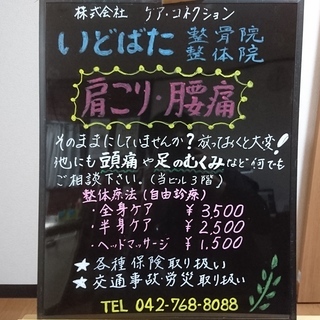 株式会社 ケア・コネクション
いどばた 整骨院
整体院
肩こり・腰痛
そのままにしていませんか?放っておくと大変!
他にも頭痛や足のむくみなど何でも
ご相談下さい。(当ビル3階)
整体療法(自由診療)
・全身ケア ¥3,500
・半身ケア ¥2,500
・ヘッドマッサージ ¥1,500
★各種保険取り扱い
★交通事故・労災取り扱い
TEL 042-768-8088